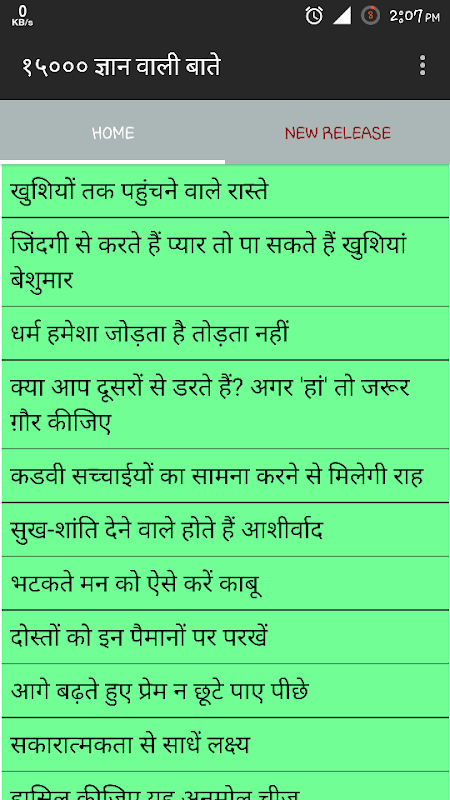 0
KB/s
8
2:07 PM
१५००० ज्ञान वाली बाते
HOME
NEW RELEASE
खुशियों तक पहुंचने वाले रास्ते
जिंदगी से करते हैं प्यार तो पा सकते हैं खुशियां
बेशुमार
धर्म हमेशा जोड़ता है तोड़ता नहीं
क्या आप दूसरों से डरते हैं? अगर 'हां' तो जरूर
ग़ौर कीजिए
कडवी सच्चाईयों का सामना करने से मिलेगी राह
सुख-शांति देने वाले होते हैं आशीर्वाद
भटकते मन को ऐसे करें काबू
दोस्तों को इन पैमानों पर परखें
आगे बढ़ते हुए प्रेम न छूटे पाए पीछे
सकारात्मकता से साधें लक्ष्य
हासिल कीजिए यह अनमोल चीज